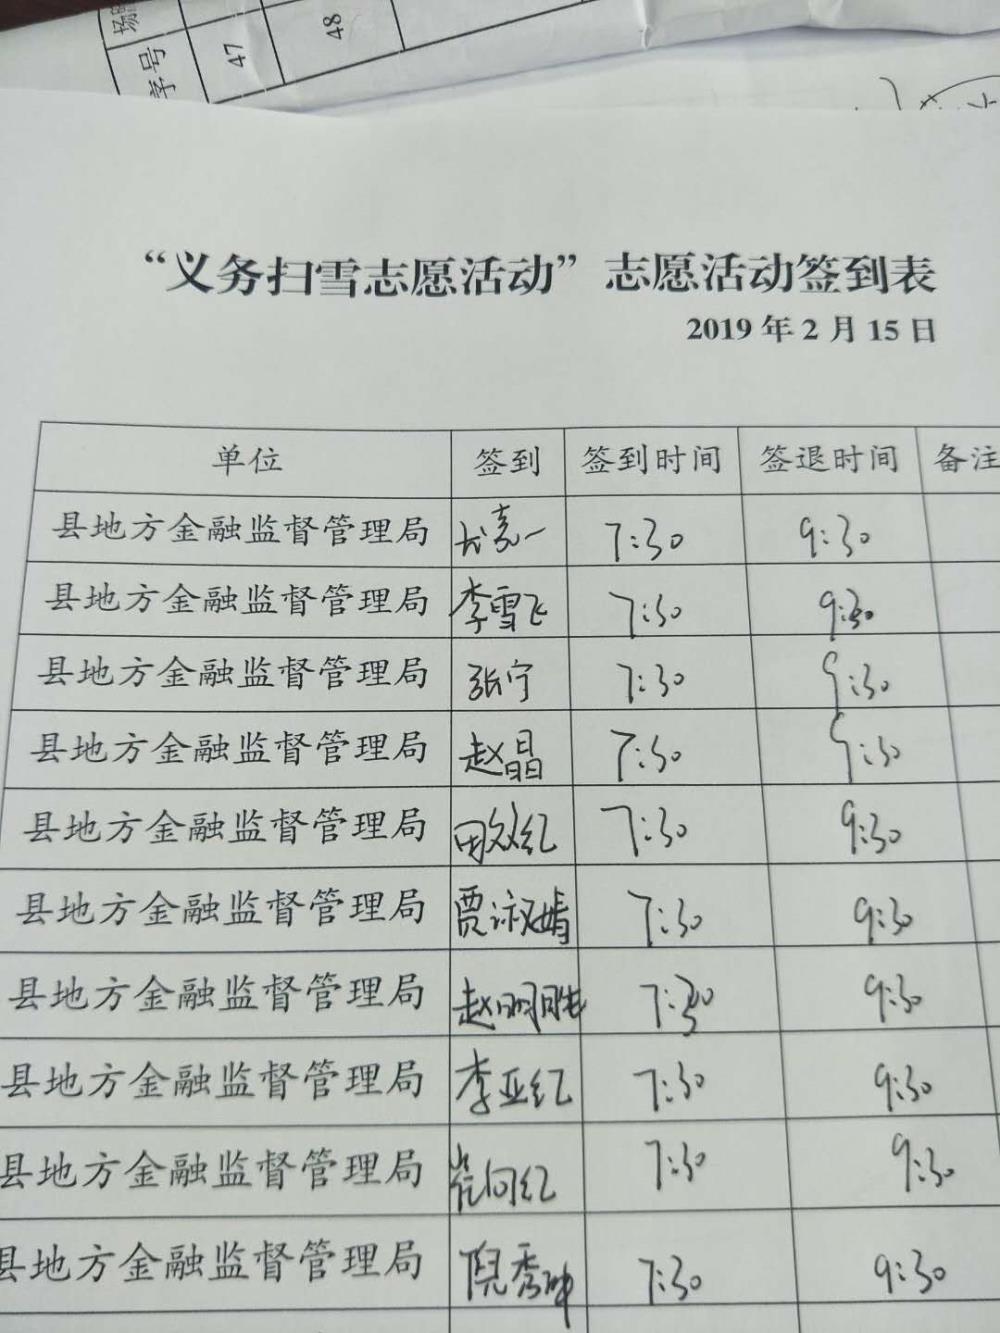 序号
47
48
“义务扫雪志愿活动”志愿活动签到表
2019年2月15日
单位 签到 签到时间 签退时间 备注
县地方金融监督管理局 7:30 9:30
县地方金融监督管理局 李雪飞 7:30 9:30
县地方金融监督管理局 张宁 7:30 9:30
县地方金融监督管理局 赵晶 7:30 9:30
县地方金融监督管理局 田效红 7:30 9:30
县地方金融监督管理局 贾淑娟 7:30 9:30
县地方金融监督管理局 赵明胜 7:30 9:30
县地方金融监督管理局 李亚红 7:30 9:30
县地方金融监督管理局 崔向红 7:30 9:30
县地方金融监督管理局 倪秀坤 7:30 9:30